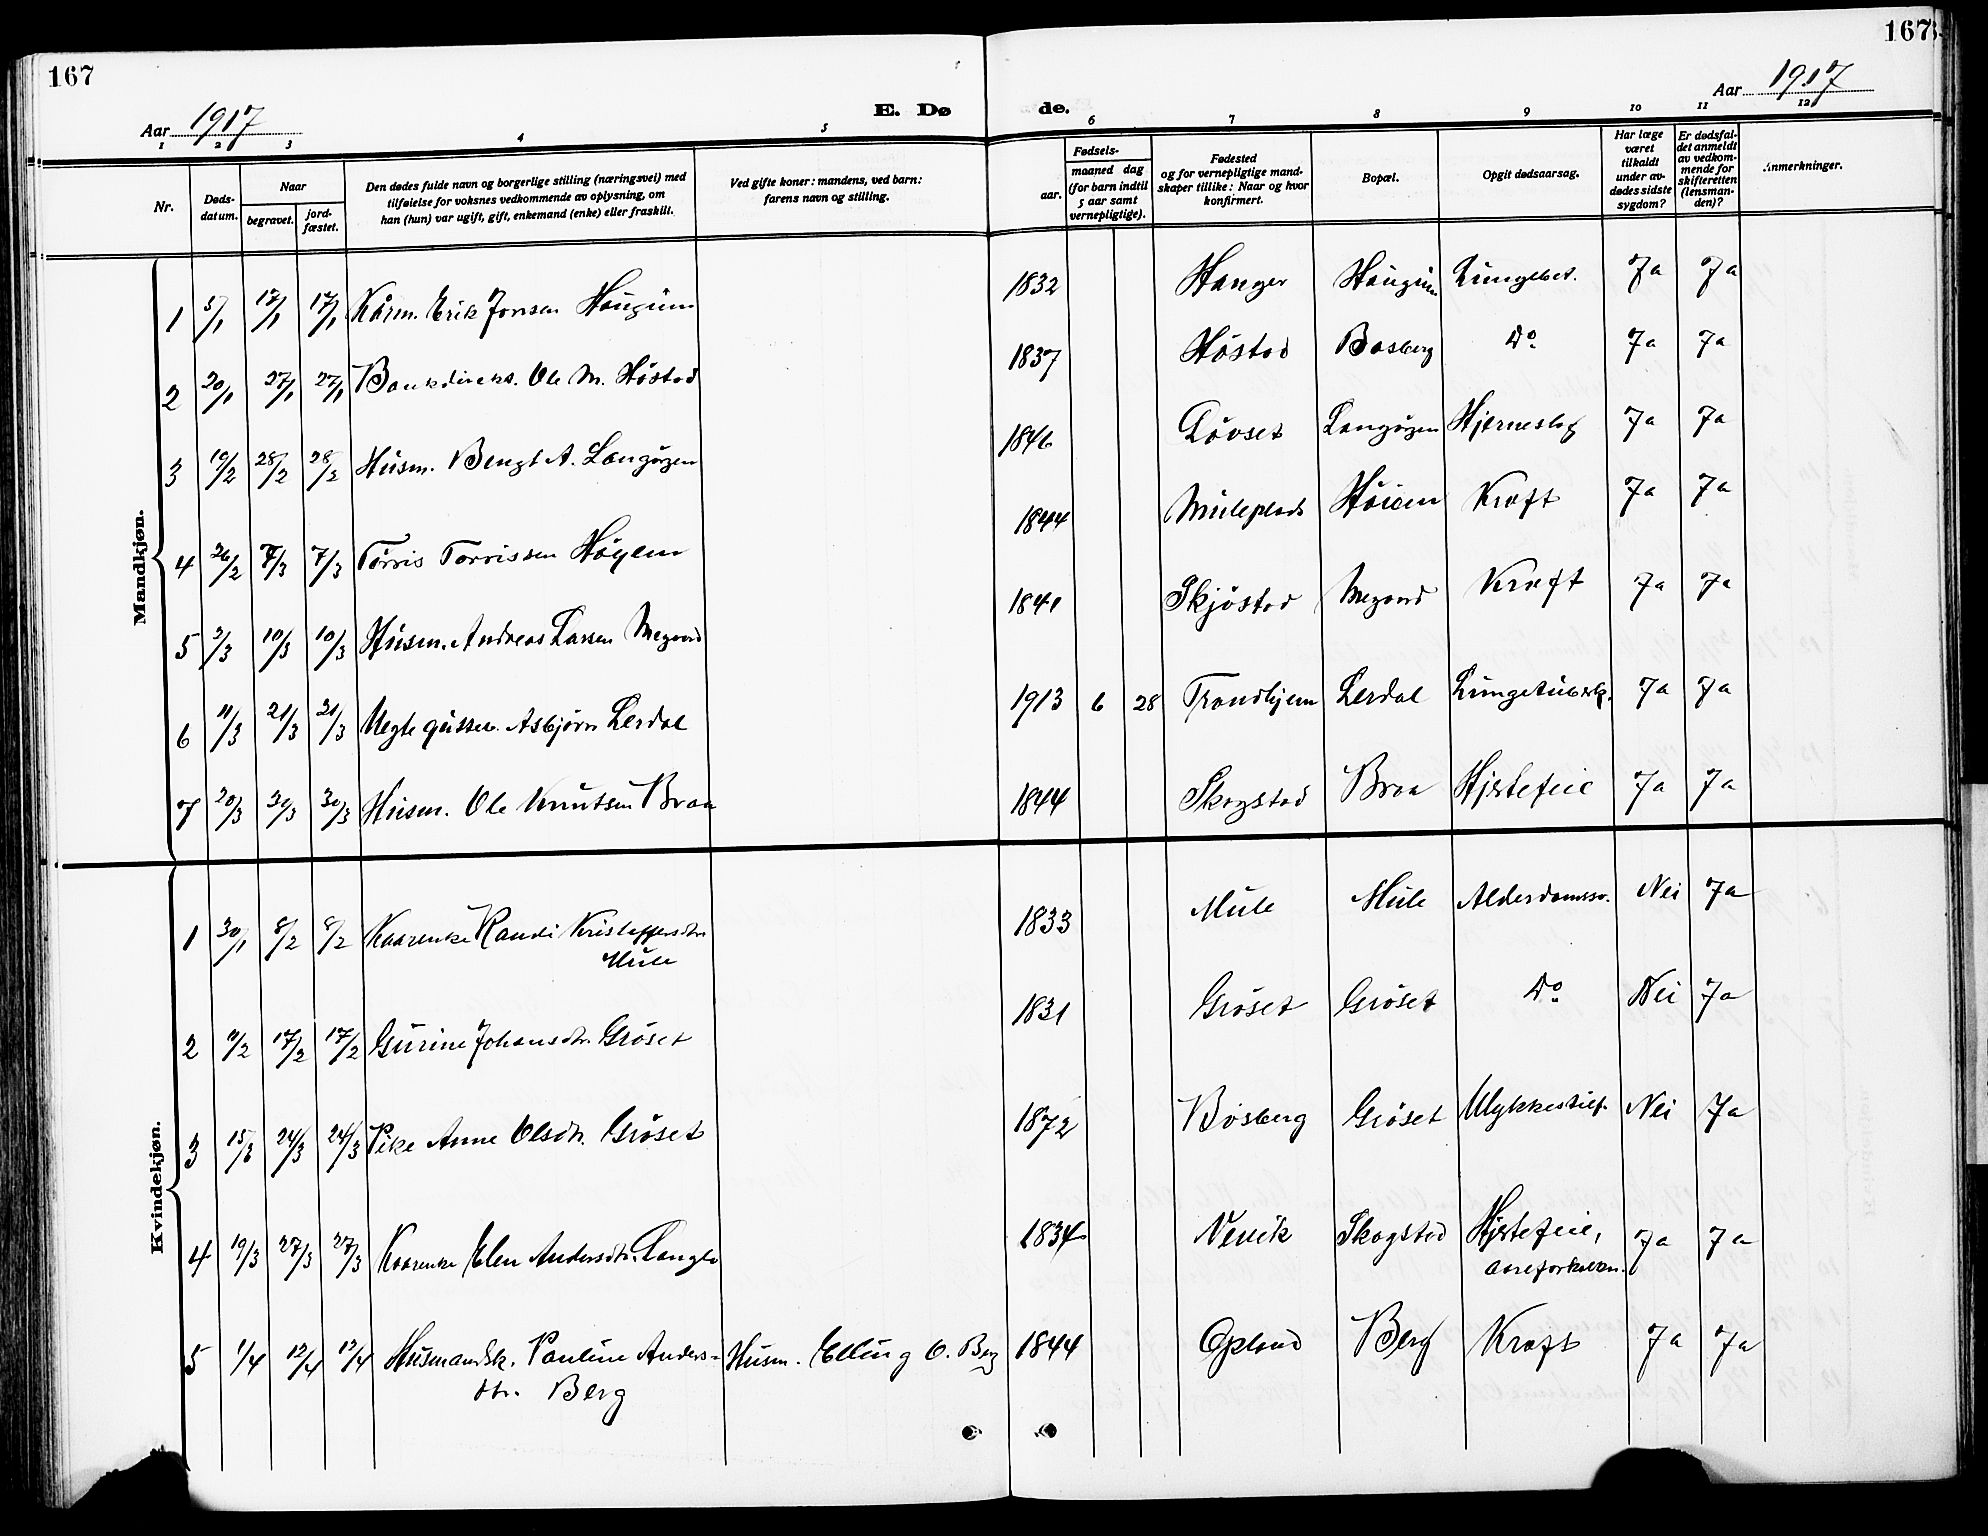 167
167
Aar 1917
E. Døde.
Aar 1917
1 2 3 4 5 6 7 8 9 10 11 12
Nr.
Døds-
datum.
Naar
begravet.
jord-
fæstet.
Den dødes fulde navn og borgerlige stilling (næringsvei) med
tilføielse for voksnes vedkommende av oplysning, om
han (hun) var ugift, gift, enkemand (enke) eller fraskilt.
Ved gifte koner: mandens, ved barn:
farens navn og stilling.
Fødsels-
aar.
maaned dag
(for barn indtil
5 aar samt
vernepligtige).
Fødested
og for vernepligtige mand-
skaper tillike: Naar og hvor
konfirmert.
Bopæl.
Opgit dødsaarsag.
Har læge
været
tilkaldt
under av-
dødes sidste
sygdom?
Er dødsfal-
det anmeldt
av vedkom-
mende for
skifteretten
(lensman-
den)?
Anmerkninger.
Mandkjøn.
1 5/1 17/1 17/1 Kårm. Erik Jonsen Haugum 1832 Hanger Haugum Lungebet. Ja Ja
2 20/1 27/1 27/1 Bankdireks. Ole M. Höstad 1837 Höstad Bosberg Do Ja Ja
3 19/2 28/2 28/2 Husm. Bengt A. Langörgen 1846 Lövset Langörgen Hjerneslag Ja Ja
4 26/2 7/3 7/3 Törris Torrissen Höyem 1844 Muleplads Höiem Kræft Ja Ja
5 2/3 10/3 10/3 Husm. Andreas Larsen Megaard 1841 Skjöstad Megaard Kræft Ja Ja
6 11/3 21/3 21/3 Uegte gutteb. Asbjörn Lerdal 1913 6 28 Trondhjem Lerdal Lungetuberk. Ja Ja
7 20/3 30/3 30/3 Husm. Ole Knutsen Braa 1844 Skogstad Braa Hjertefeil Ja Ja
Kvindekjøn.
1 30/1 8/2 8/2 Kaarenke Randi Kristoffersdtr. 1833 Mule Mule Alderdomssv. Nei Ja
Mule
2 11/2 17/2 17/2 Gurine Johansdtr. Gröset 1831 Gröset Gröset Do Nei Ja
3 15/3 24/3 24/3 Pike Anne Olsdtr. Gröset 1872 Bosberg Gröset Ulykkestilf. Nei Ja
4 19/3 27/3 27/3 Kaarenke Elen Andersdtr. Langlo 1834 Skogstad Hjertefeil, Ja Ja
aareforkalkn.
5 1/4 12/4 12/4 Husmandsk. Pauline Anders- Husm. Elling O. Berg 1844 Opland Berg Kræft Ja Ja
dtr. Berg